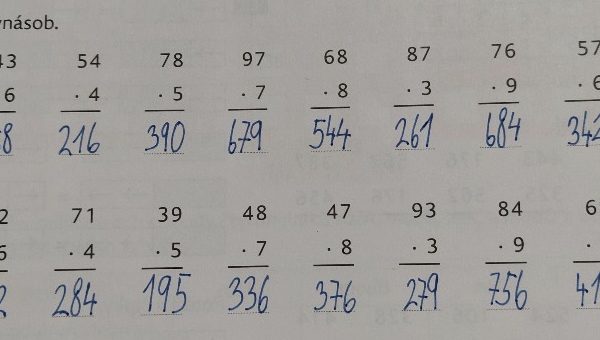 ynásob.
43 54 78 97 68 87 76 57
6 · 4 · 5 · 7 · 8 · 3 · 9 · 6
8 216 390 679 544 261 684 342
2 71 39 48 47 93 84 6
6 · 4 · 5 · 7 · 8 · 3 · 9 ·
2 284 195 336 376 279 756 41